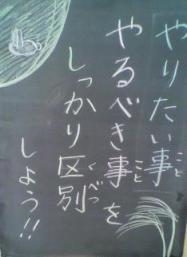 やりたい事こと
やるべき事ことを
しっかり区別くべつ
しよう!!